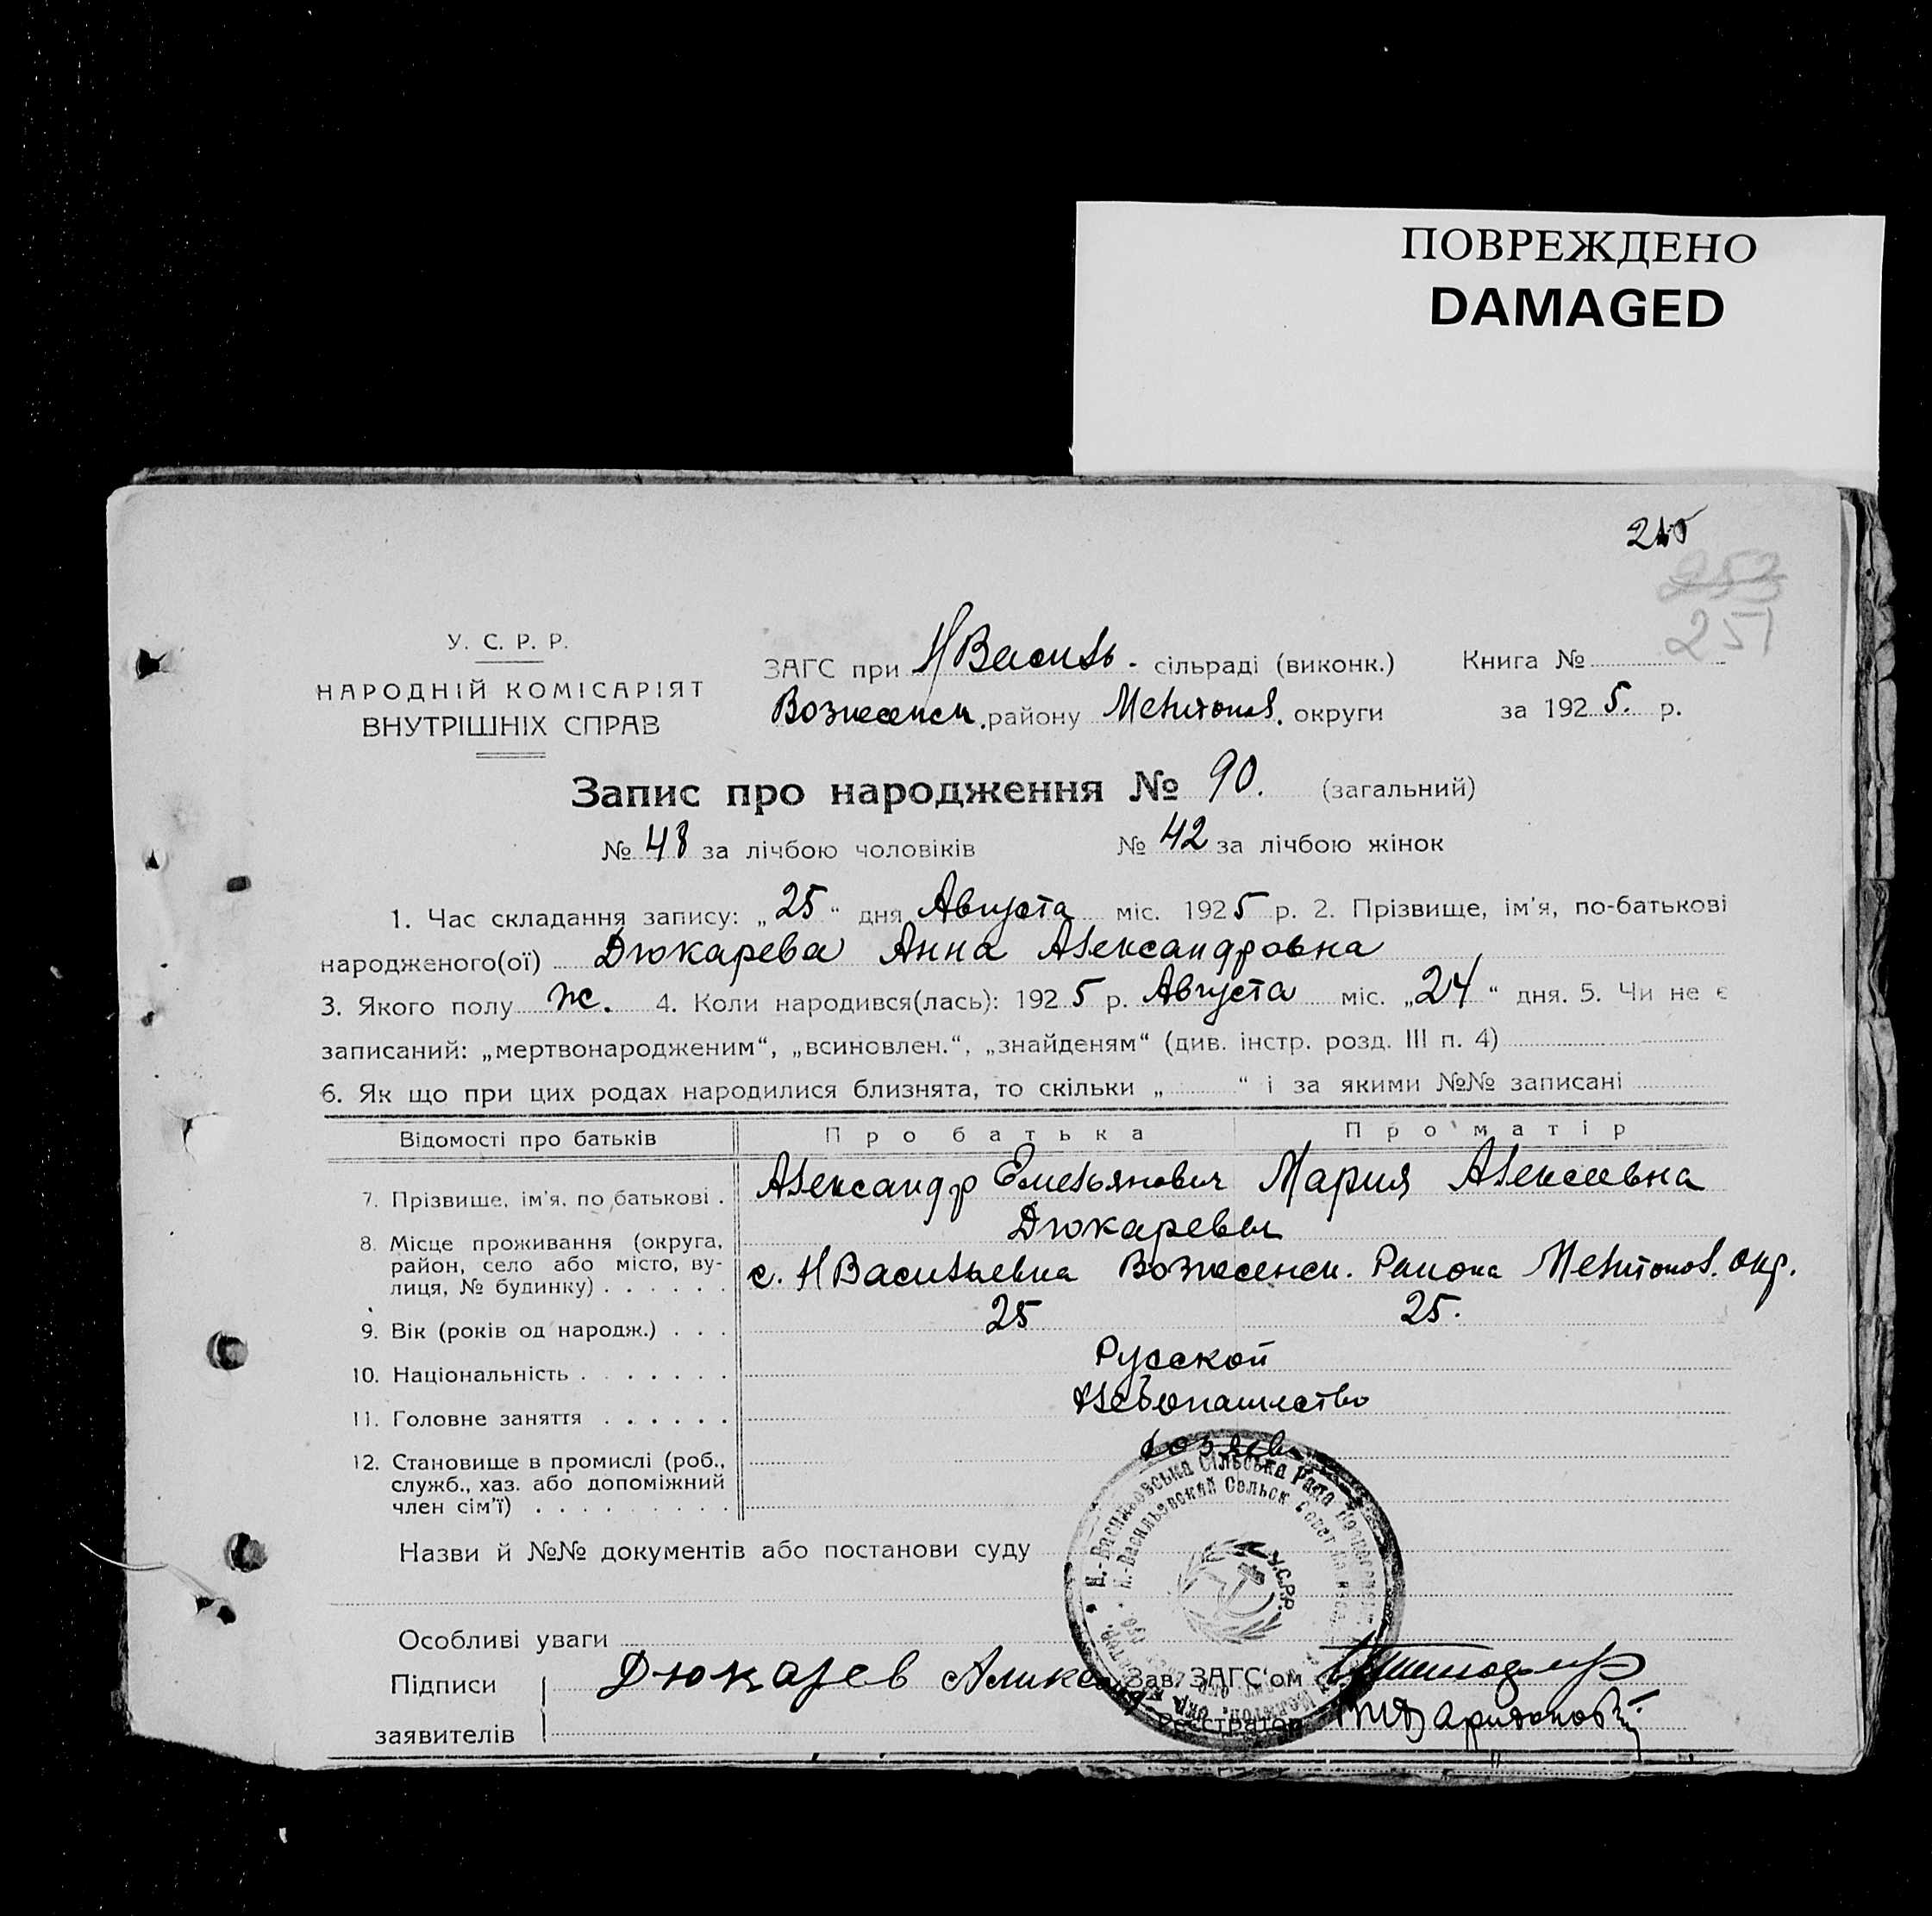 ПОВРЕЖДЕНО
DAMAGED
251
У. С. Р. Р.
НАРОДНІЙ КОМІСАРІЯТ
ВНУТРІШНІХ СПРАВ
ЗАГС при НВасиль- сільраді (виконк.) Книга №
Вознесенск. району Мелитопол. округи за 1925. р.
Запис про народження № 90. (загальний)
№ 48 за лічбою чоловіків № 42 за лічбою жінок
1. Час складання запису: „25“ дня Августа міс. 1925 р. 2. Прізвище, ім'я, по-батькові
народженого(ої) Дюкарева Анна Александровна
3. Якого полу ж. 4. Коли народився(лась): 1925 р. Августа міс. „24“ дня. 5. Чи не є
записаний: „мертвонародженим“, „всиновлен.“, „знайденям“ (див. інстр. розд. III п. 4)
6. Як що при цих родах народилися близнята, то скільки „ “ і за якими №№ записані
Відомості про батьків Про батька Про матір
7. Прізвище, ім'я, по батькові . Александр Емельянович Мария Алексеевна
Дюкаревы
8. Місце проживання (округа,
район, село або місто, ву-
лиця, № будинку) . . . . . . с. НВасильевка Вознесенск. Района Мелитопол. окр.
9. Вік (років од народж.) . . . 25 25.
10. Національність . . . . . . . Русской
11. Головне заняття . . . . . . Хлебопашество
12. Становище в промислі (роб.,
служб., хаз. або допоміжний
член сім'ї) . . . . . . . . .
Назви й №№ документів або постанови суду
Н.-Васильовська Сільська Рада
Н.-Васильевский Сельск. Совет
У.С.Р.Р.
Особливі уваги
Підписи Дюкарев Зав. ЗАГС'ом
заявителів Реєстратор